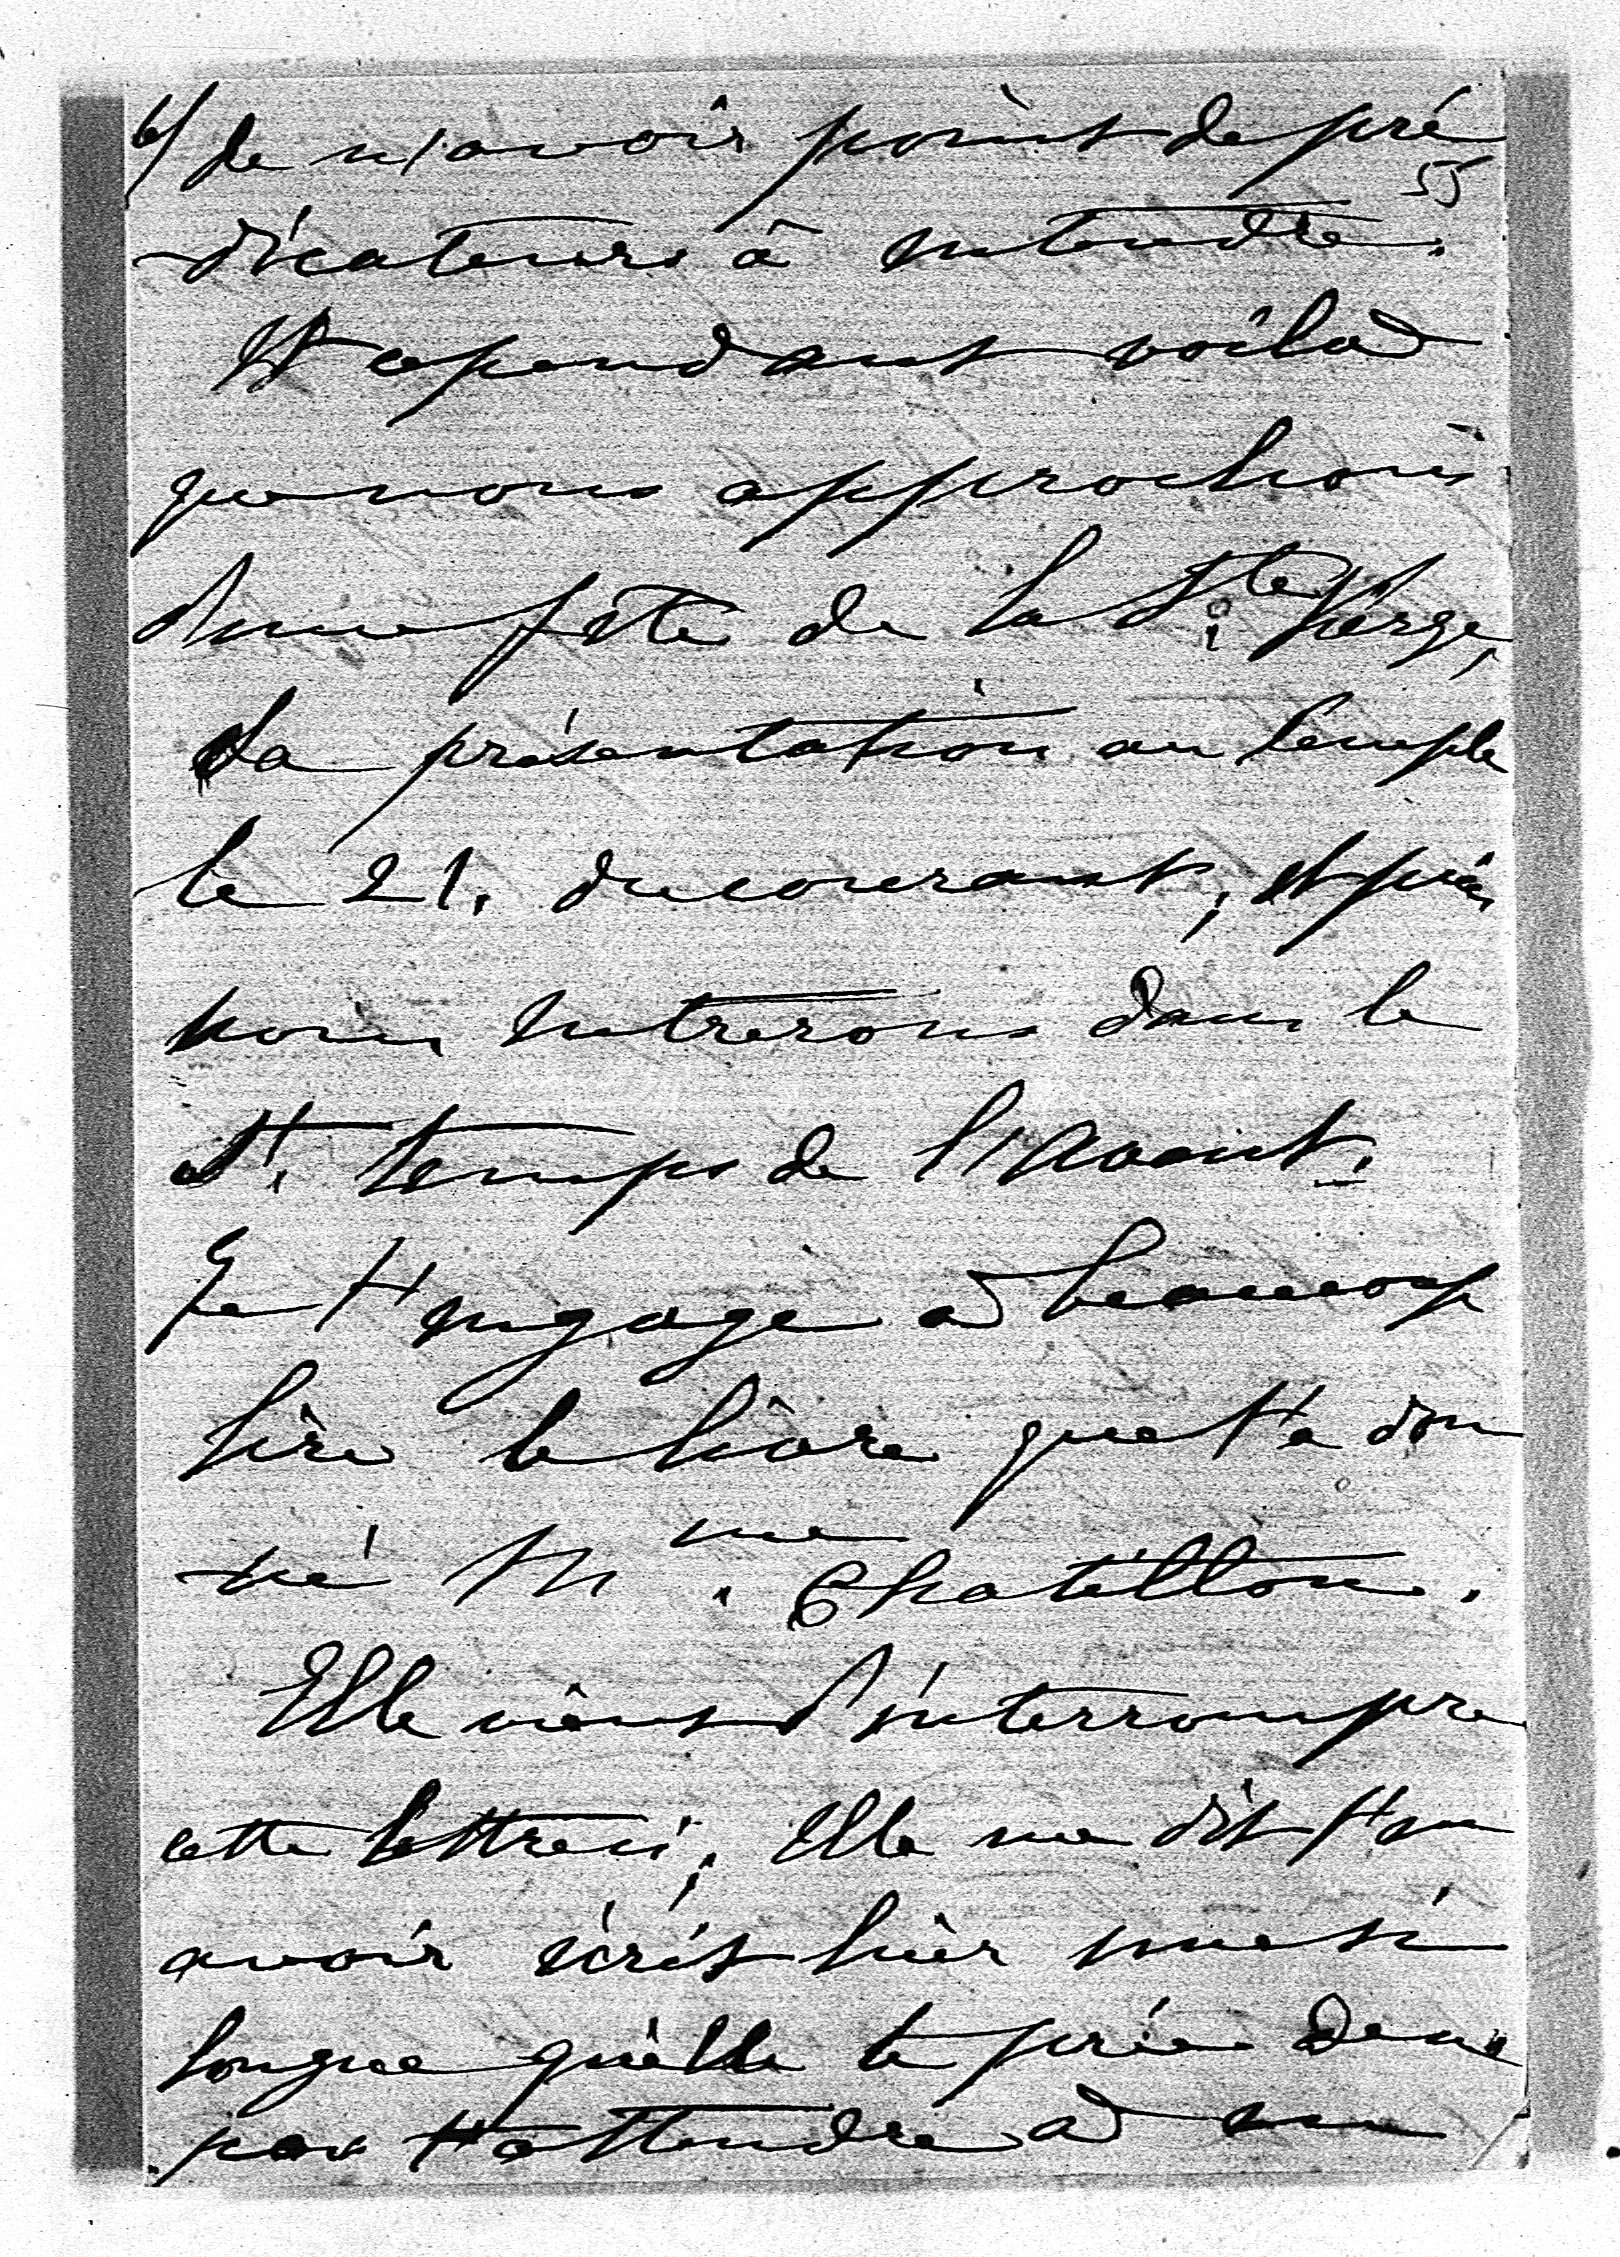 6/ de n'avoir point de pré
55
dicateurs à entendre.
Et cependant voilà
que nous approchons
d'une fête de la Ste Vierge,
La présentation au temple
le 21. du courant, et puis
nous entrerons dans le
St. temps de l'Avent.
Je t'engage à beaucoup
lire le livre que t'a don
né Mme. Chatillon.
Elle vient d'interrompre
cette lettre ci; Elle me dit t'en
avoir écrit hier une si
longue qu'elle te prie de ne
pas t'attendre à un